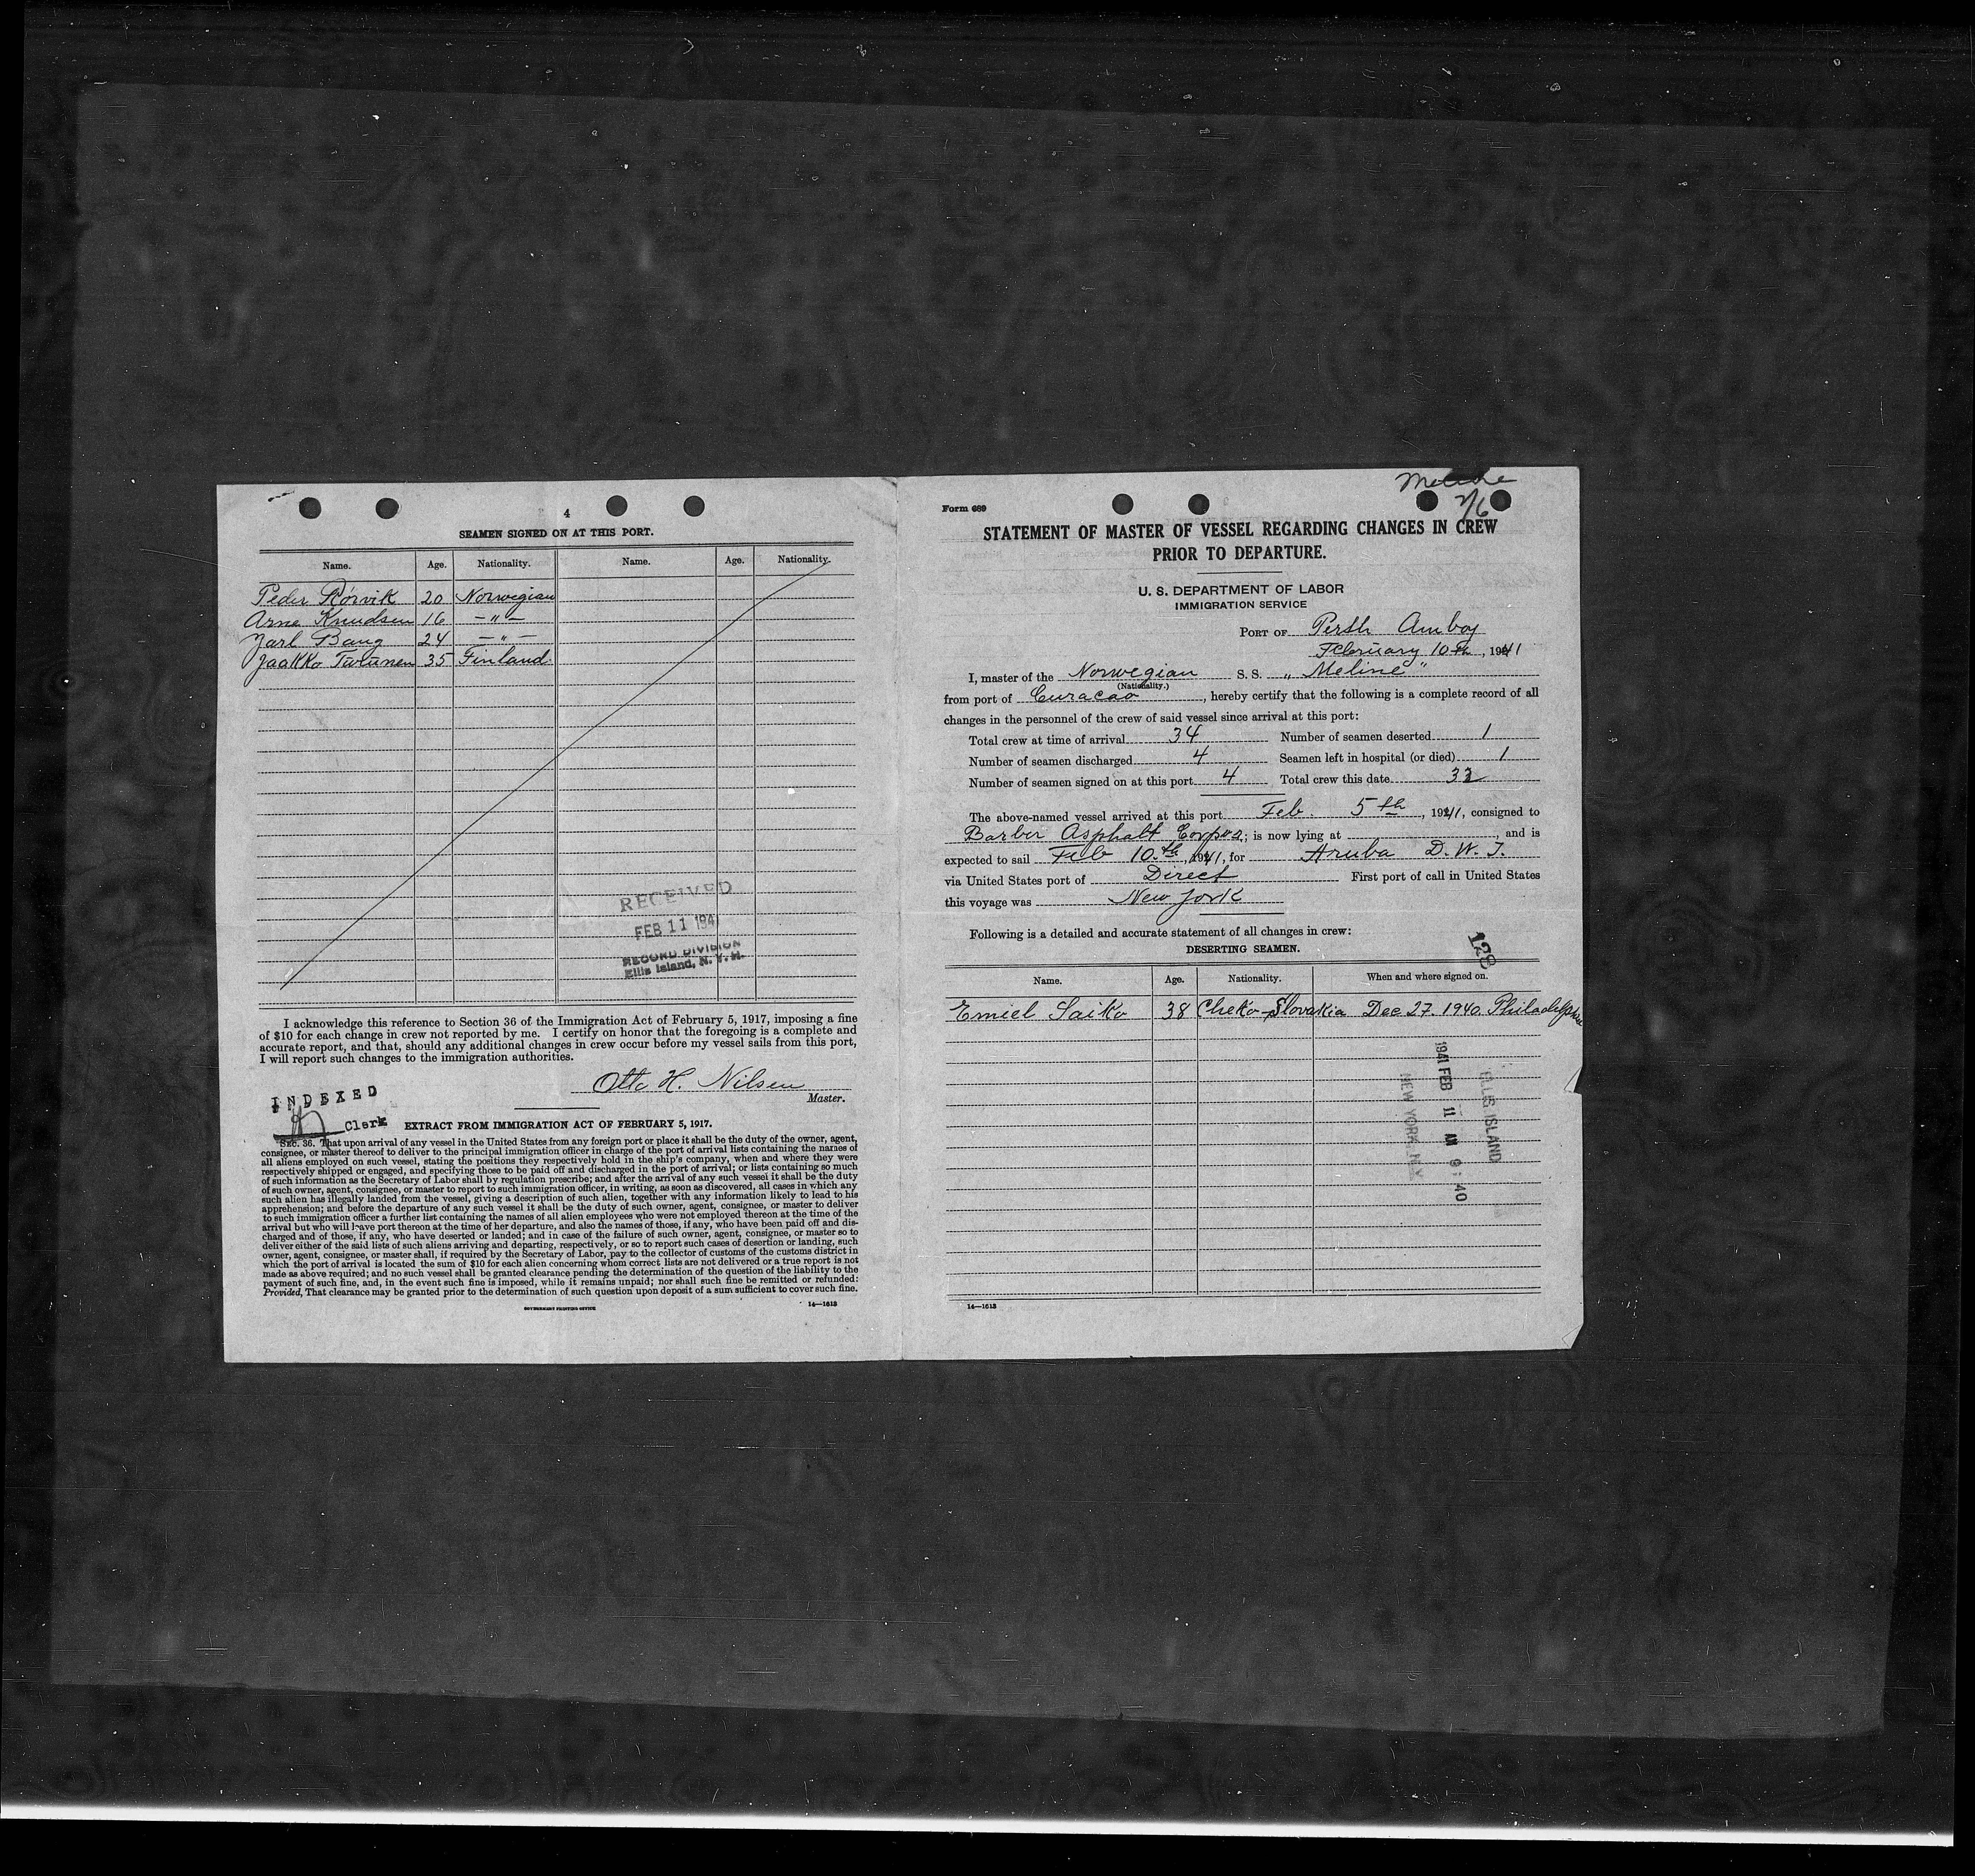 4
SEAMEN SIGNED ON AT THIS PORT.
Name. Age. Nationality. Name. Age. Nationality.
Peder Rörvik 20 Norwegian
Arne Knudsen 16 – " –
Jarl Bang 24 – " –
Jaakko Turunen 35 Finland.
RECEIVED
FEB 11 194
RECORD DIVISION
Ellis Island, N. Y. H.
I acknowledge this reference to Section 36 of the Immigration Act of February 5, 1917, imposing a fine
of $10 for each change in crew not reported by me. I certify on honor that the foregoing is a complete and
accurate report, and that, should any additional changes in crew occur before my vessel sails from this port,
I will report such changes to the immigration authorities.
Otto H. Nilsen
Master.
INDEXED
Clerk
EXTRACT FROM IMMIGRATION ACT OF FEBRUARY 5, 1917.
SEC. 36. That upon arrival of any vessel in the United States from any foreign port or place it shall be the duty of the owner, agent,
consignee, or master thereof to deliver to the principal immigration officer in charge of the port of arrival lists containing the names of
all aliens employed on such vessel, stating the positions they respectively hold in the ship's company, when and where they were
respectively shipped or engaged, and specifying those to be paid off and discharged in the port of arrival; or lists containing so much
of such information as the Secretary of Labor shall by regulation prescribe; and after the arrival of any such vessel it shall be the duty
of such owner, agent, consignee, or master to report to such immigration officer, in writing, as soon as discovered, all cases in which any
such alien has illegally landed from the vessel, giving a description of such alien, together with any information likely to lead to his
apprehension; and before the departure of any such vessel it shall be the duty of such owner, agent, consignee, or master to deliver
to such immigration officer a further list containing the names of all alien employees who were not employed thereon at the time of the
arrival but who will leave port thereon at the time of her departure, and also the names of those, if any, who have been paid off and dis-
charged and of those, if any, who have deserted or landed; and in case of the failure of such owner, agent, consignee, or master so to
deliver either of the said lists of such aliens arriving and departing, respectively, or so to report such cases of desertion or landing, such
owner, agent, consignee, or master shall, if required by the Secretary of Labor, pay to the collector of customs of the customs district in
which the port of arrival is located the sum of $10 for each alien concerning whom correct lists are not delivered or a true report is not
made as above required; and no such vessel shall be granted clearance pending the determination of the question of the liability to the
payment of such fine, and, in the event such fine is imposed, while it remains unpaid; nor shall such fine be remitted or refunded:
Provided, That clearance may be granted prior to the determination of such question upon deposit of a sum sufficient to cover such fine.
GOVERNMENT PRINTING OFFICE 14—1613
Form 689
2/6
STATEMENT OF MASTER OF VESSEL REGARDING CHANGES IN CREW
PRIOR TO DEPARTURE.
U. S. DEPARTMENT OF LABOR
IMMIGRATION SERVICE
PORT OF Perth Amboy
February 10th, 1941
I, master of the Norwegian S. S. „ Meline "
(Nationality.)
from port of Curacao, hereby certify that the following is a complete record of all
changes in the personnel of the crew of said vessel since arrival at this port:
Total crew at time of arrival 34 Number of seamen deserted 1
Number of seamen discharged 4 Seamen left in hospital (or died) 1
Number of seamen signed on at this port 4 Total crew this date
The above-named vessel arrived at this port Feb. 5th, 1941, consigned to
Barber Asphalt; is now lying at , and is
expected to sail Feb 10.th, 1941, for Aruba D. W. I.
via United States port of Direct First port of call in United States
this voyage was New York
Following is a detailed and accurate statement of all changes in crew:
128
DESERTING SEAMEN.
Name. Age. Nationality. When and where signed on.
Emiel Saiko 38 Cheko-Slovakia Dec. 27. 1940. Philadelphia
ELLIS ISLAND
1941 FEB 11 AM 9:40
NEW YORK, N.Y.
14—1613